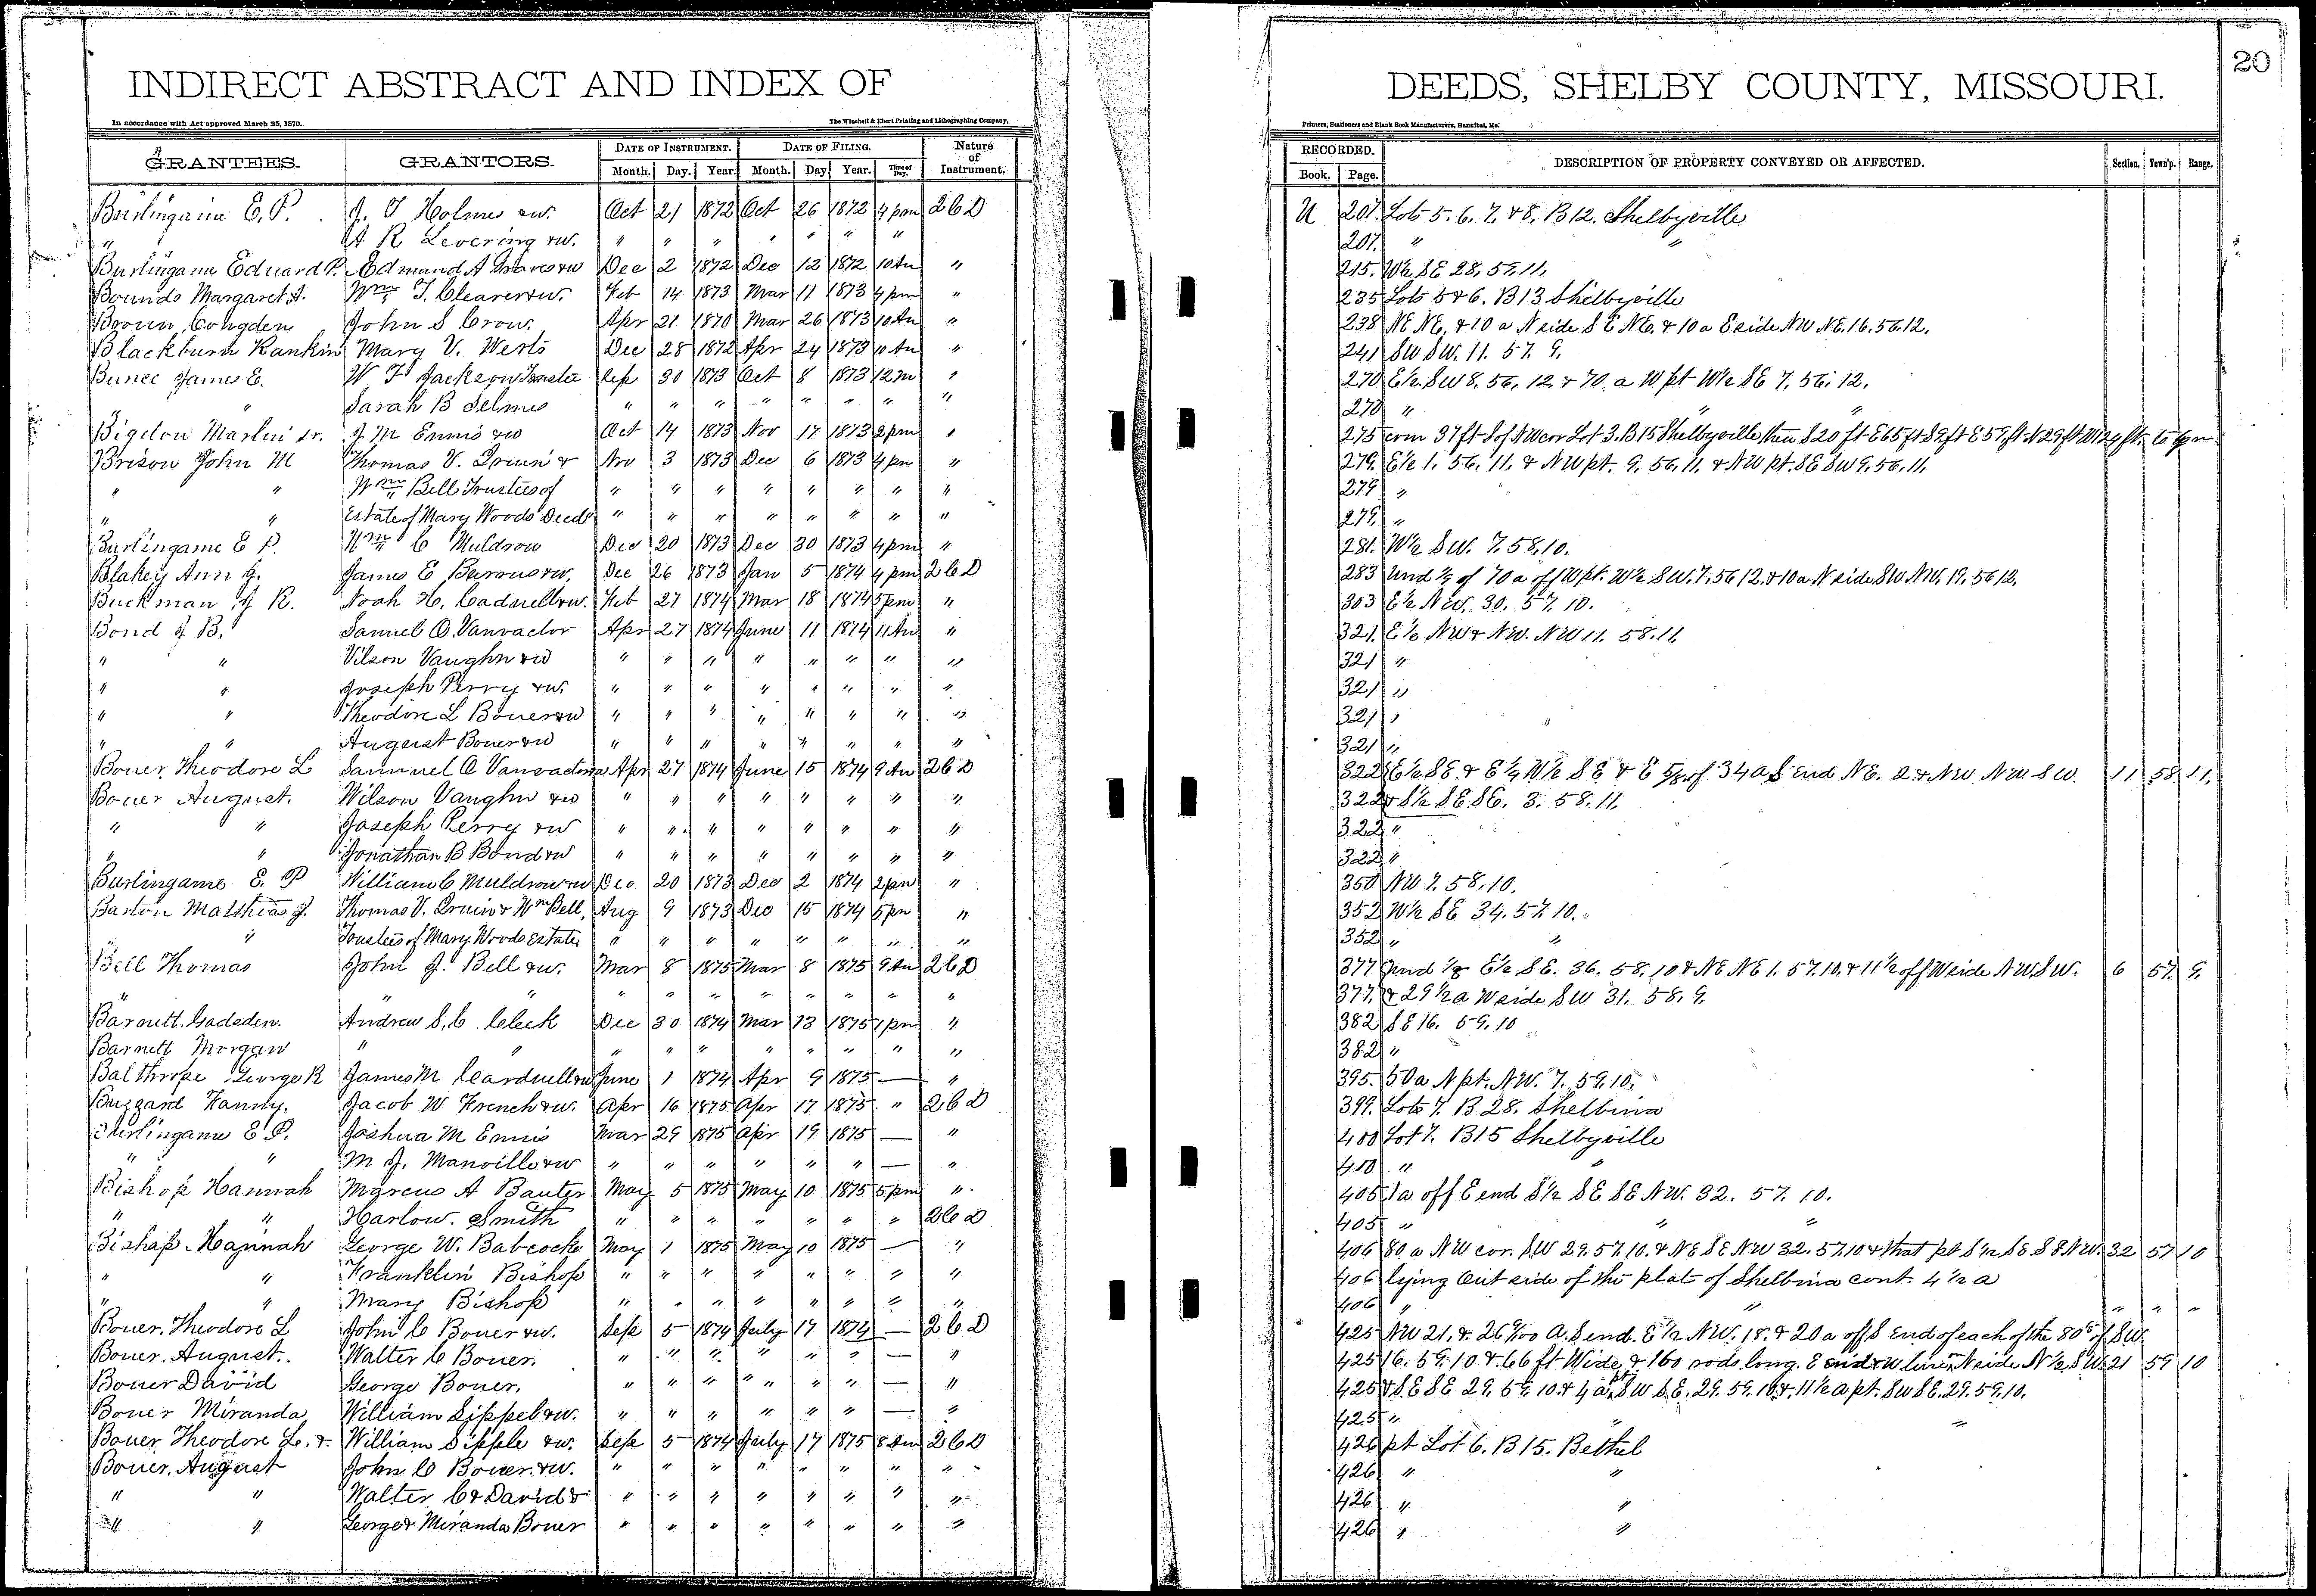 INDIRECT ABSTRACT AND INDEX OF DEEDS, SHELBY COUNTY, MISSOURI. 20
In accordance with Act approved March 25, 1870. The Winchell & Ebert Printing and Lithographing Company, Printers, Stationers and Blank Book Manufacturers, Hannibal, Mo.
GRANTEES. GRANTORS. DATE OF INSTRUMENT. DATE OF FILING. Nature of Instrument. RECORDED. DESCRIPTION OF PROPERTY CONVEYED OR AFFECTED. Section. Town'p. Range.
Month. Day. Year. Month. Day. Year. Time of Day. Book. Page.
Burlingame E. P. J. T Holmes &w. Oct 21 1872 Oct 26 1872 4 pm U 207. Lots 5. 6. 7. & 8. B 12. Shelbyville
" A R Levering &w. " " " " " " " 207. " "
Burlingame Edward P. Edmund A Graves &w Dec 2 1872 Dec 12 1872 10 Am " 215. W½ SE 28. 57. 11.
Bounds Margaret A. Wm T. Cleaver &w. Feb 14 1873 Mar 11 1873 4 pm " 235 Lots 5 & 6. B 13 Shelbyville
Congden John S Crow. Apr 21 1870 Mar 26 1873 10 Am " 238 NE NE. & 10 a N side S E NE. & 10 a E side NW NE. 16. 56. 12.
Blackburn Rankin Mary V. Werts Dec 28 1872 Apr 24 1873 10 Am " 241 SW SW. 11. 57. 9.
Bunce James E. W T Jackson Trustee Sep 30 1873 Oct 8 1873 12 m " 270 E½ SW 8. 56. 12 & 70 a W pt W½ SE 7. 56. 12.
" Sarah B Selmes " " " " " " " " 270 " " "
Bigelow Martin Sr. J M Ennis &w Oct 14 1873 Nov 17 1873 2 pm " 275 com 37 ft S of NW cor Lot 3. B 15 Shelbyville then S 20 ft E 65 ft S 9 ft E 59 ft N 29 ft W 124 ft
Brison John M Thomas V. &  Nov 3 1873 Dec 6 1873 4 pm " 279. E½ 1. 56. 11. & NW pt. 9. 56. 11. & NW pt. SE SW 9. 56. 11.
" " Wm Bell Trustees of " " " " " " " " 279 "
" " Estate of Mary Woods Decd " " " " " " " " 279. "
Burlingame E P. Wm C Muldrow Dec 20 1873 Dec 30 1873 4 pm " 281. W½ SW. 7. 58. 10.
Blakey Ann G. James E &w. Dec 26 1873 Jan 5 1874 4 pm 283 Und of 70 a off W pt. W½ SW. 7. 56 12. & 10 a N side SW NW. 19. 56 12.
Buckman J R. Noah H. &w. Feb 27 1874 Mar 18 1874 5 pm " 303 E½ NW. 30. 57. 10.
Bond J B. Samuel O. Vanvactor Apr 27 1874 June 11 1874 11 Am " 321. E½ NW & NW. NW 11. 58. 11.
" " Vilson Vaughn &w " " " " " " " " 321 "
" " Joseph Perry &w. " " " " " " " " 321 "
" " Theodore L Bouer &w " " " " " " " " 321 " "
" " August Bouer &w " " " " " " " " 321 "
Bouer Theodore L Samuel O Vanvactor Apr 27 1874 June 15 1874 9 Am 322 E½ SE. & E½ W½ SE & E of 34 a S End NE. 2. & NW. NW SW. 11 58 11.
Bouer August. Wilson Vaughn &w " " " " " " " " 322 & S½ SE SE. 3. 58. 11.
" " Joseph Perry &w " " " " " " " " 322 "
" " Jonathan B Bond &w " " " " " " " " 322 "
Burlingame E. P William C Muldrow &w Dec 20 1873 Dec 2 1874 2 pm " 350 NW 7. 58. 10.
Barton Matthias J. Thomas V. & Wm Bell, Aug 9 1873 Dec 15 1874 5 pm " 352 W½ SE 34. 57. 10.
" Trustees of Mary Woods Estate " " " " " " " " 352 " "
Bell Thomas John J. Bell &w. Mar 8 1875 Mar 8 1875 9 Am 377 Und ⅛ E½ SE. 36. 58. 10 & NE NE 1. 57. 10. & 11½ off W side NW SW. 6 57. 9.
" " " " " " " " " " " 377. & 29½ a W side SW 31. 58. 9.
Barnett Gadsden. Andrew S. C. Cleek Dec 30 1874 Mar 13 1875 1 pm " 382 SE 16. 59. 10
Barnett Morgan " " " " " " " " " " 382 "
Balthrope George R James M Cardwell &w June 1 1874 Apr 9 1875 — " 395. 50 a N pt. NW. 7. 59. 10.
Buzzard Fanny. Jacob W French &w. Apr 16 1875 Apr 17 1875 " 399. Lots 7. B 28. Shelbina
Burlingame E P. Joshua M Ennis Mar 29 1875 Apr 19 1875 — " 400 Lot 7. B15 Shelbyville
" " M J. Manville &w " " " " " " — " 400 " "
Bishop Hannah Marcus A Bauter May 5 1875 May 10 1875 5 pm " 405 1a off E end S½ SE SE NW. 32. 57. 10.
" " Harlow. Smith " " " " " " " 405 " " "
Bishop Hannah George W. Babcock May 1 1875 May 10 1875 — " 406 80 a NW cor. SW 29. 57. 10. & NE SE NW 32. 57. 10 & that pt S½ SE SE NW. 32 57 10
" " Franklin Bishop " " " " " " " " 406 lying out side of the plat of Shelbina cont. 4½ a
" " Mary Bishop " " " " " " " " 406 " " " " "
Bouer. Theodore L John C Bouer &w. Sep 5 1874 July 17 1874 — 425 NW 21. & 26 a. S end. E½ NW. 18. & 20 a off S End of each of the 80s of SW.
Bouer. August. Walter C Bouer. " " " " " " — " 425 16. 59. 10 & 66 ft Wide & 160 rods long. E line N side N½ SW. 21 59 10
Bouer David George Bouer. " " " " " " — " 425 & SE SE 29. 59. 10. & 4 a pt SW SE. 29. 59. 10 & 11½ a pt. SW SE. 29. 59. 10.
Bouer Miranda William Sippel &w. " " " " " " — " 425 " " "
Bouer Theodore L. & William Sipple &w. Sep 5 1874 July 17 1875 8 Am 426 pt Lot 6. B 15. Bethel
Bouer. August John C Bouer. &w. " " " " " " " " 426 " "
" " Walter C & David & " " " " " " " " 426 " "
" " George & Miranda Bouer " " " " " " " " 426 " "